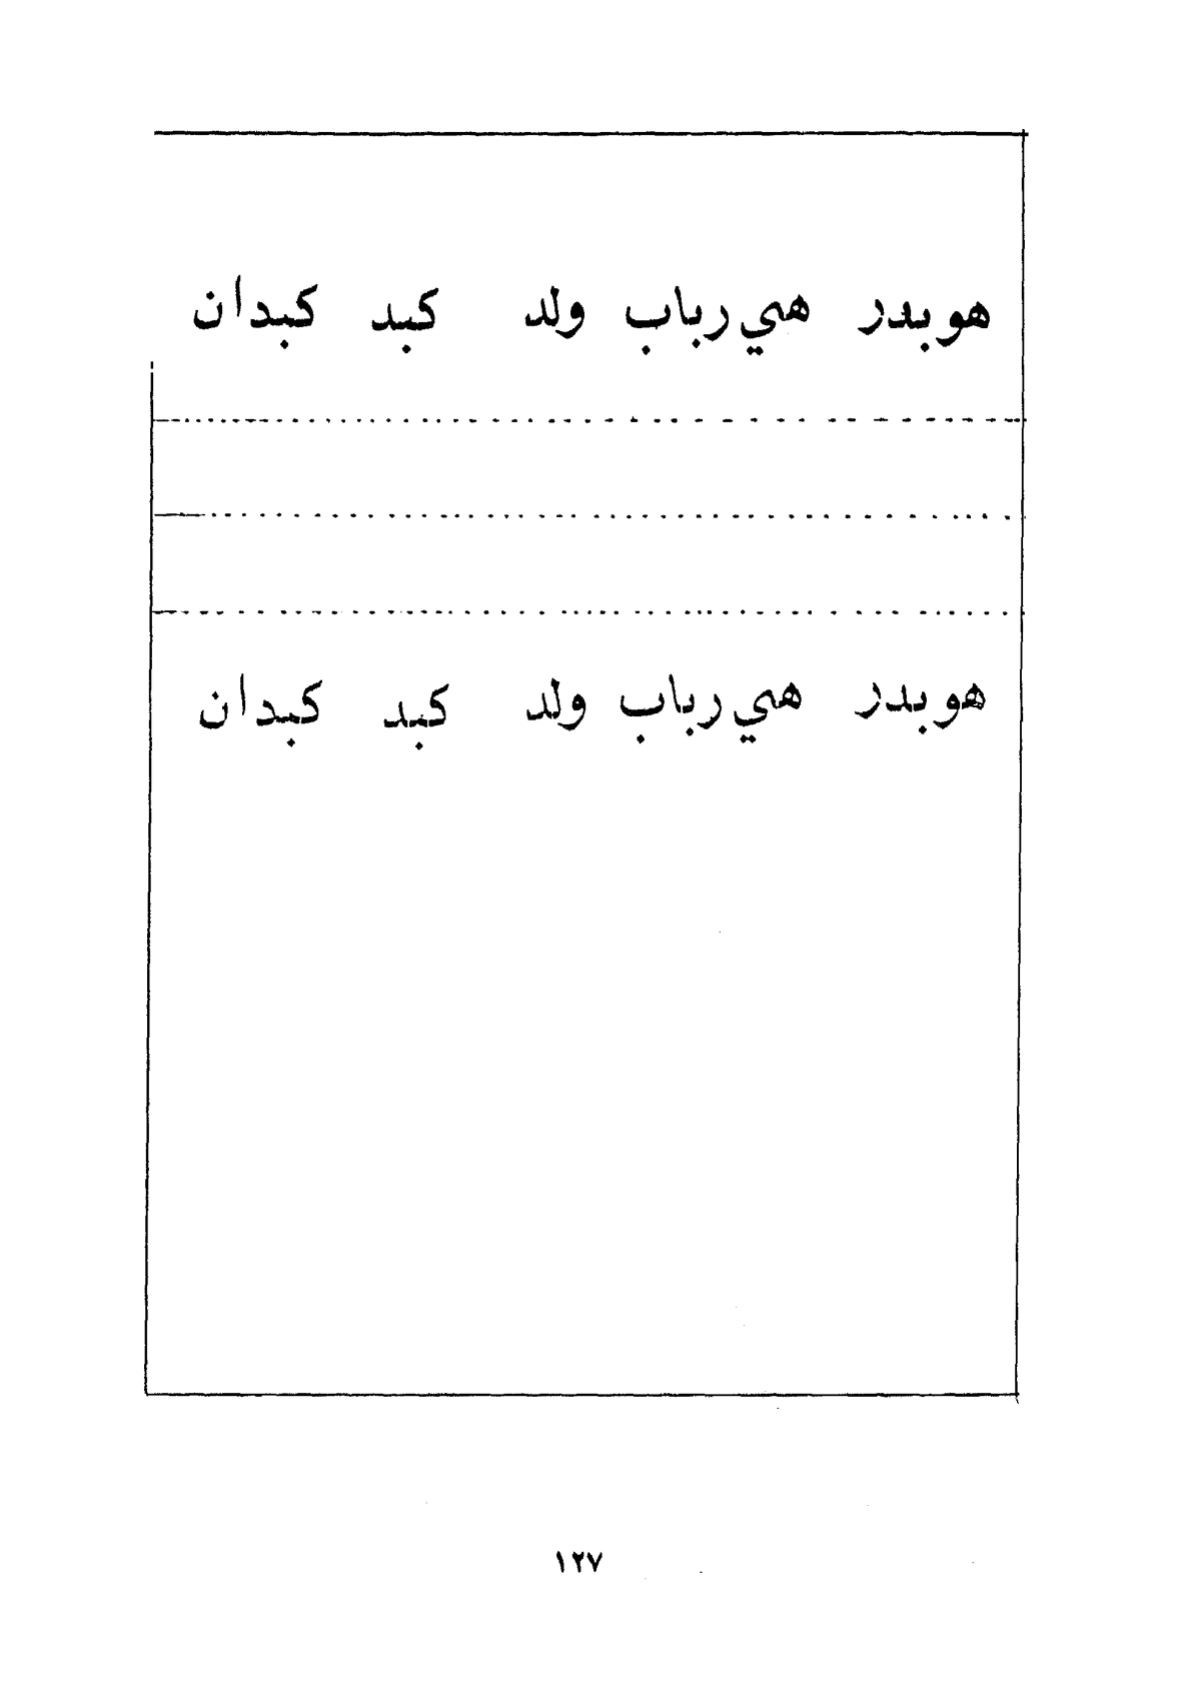 هو بدر هي رباب ولد كبد كبدان
هو بدر هي رباب ولد كبد كبدان
١٢٧